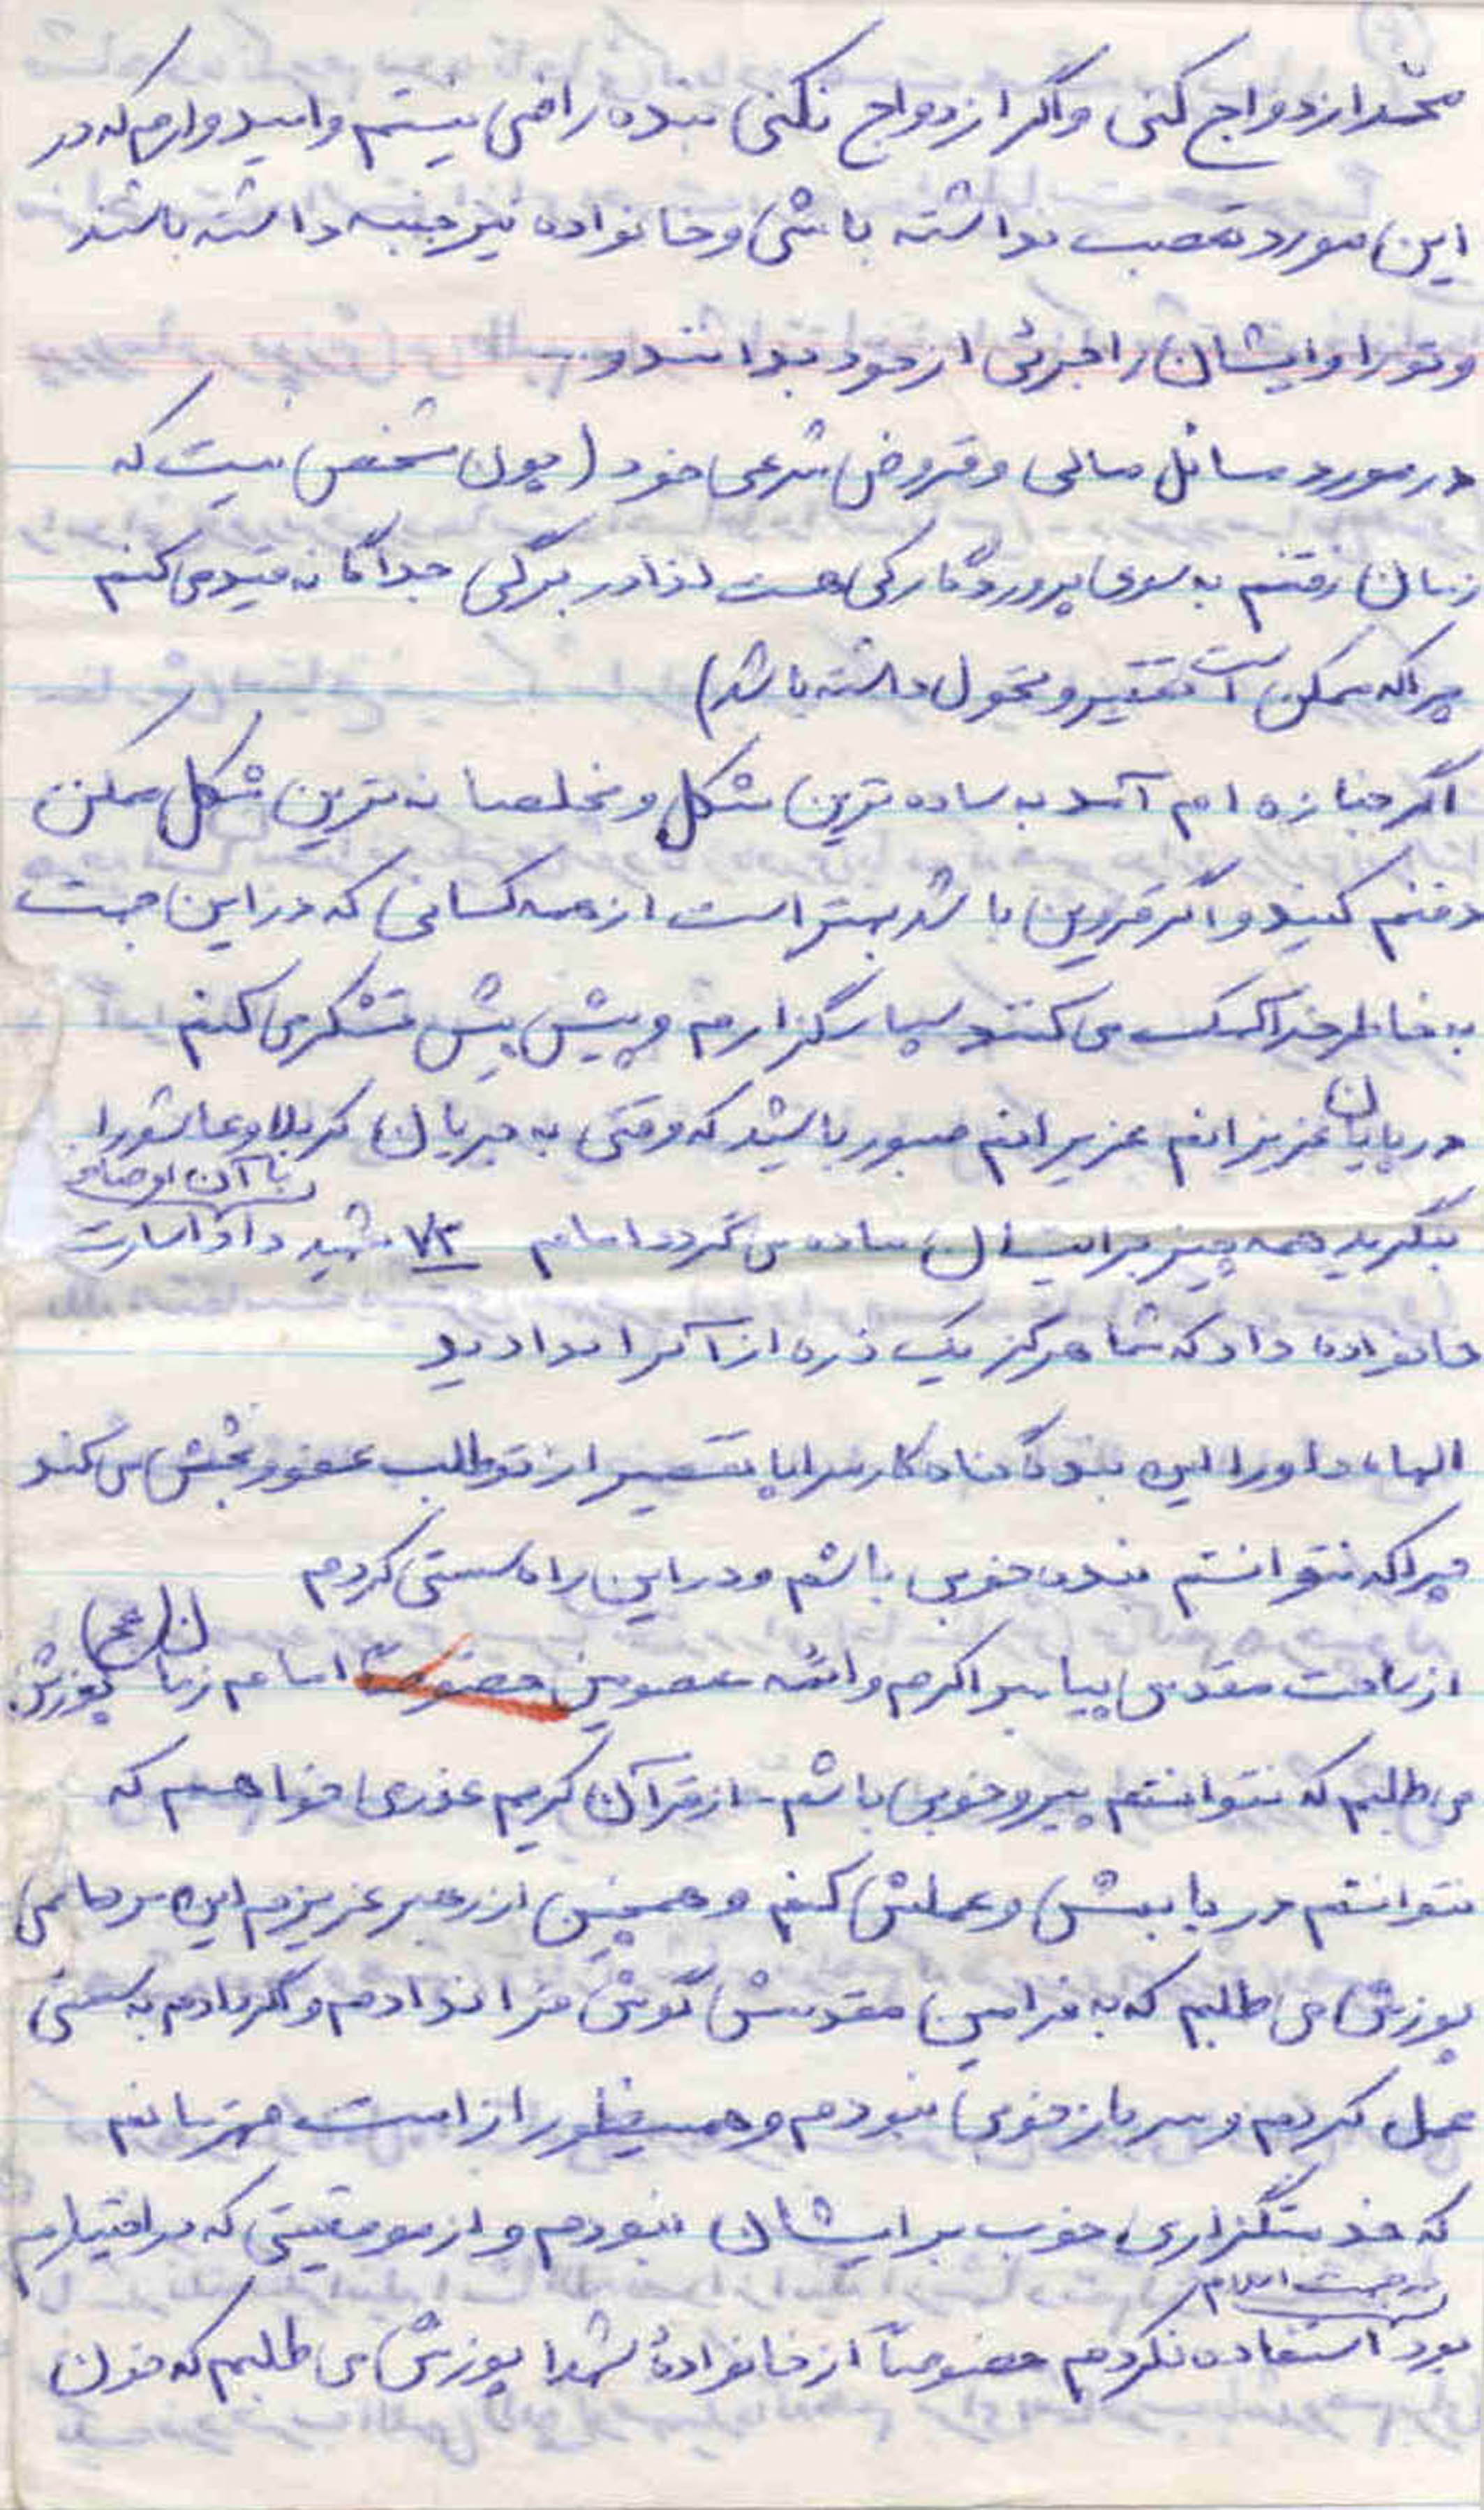 مجدداً ازدواج کنی و اگر ازدواج نکنی بنده راضی نیستم و امیدوارم که در
این مورد تعصب نداشته باشی و خانواده نیز جنبه داشته باشند
و تو را و ایشان را جزئی از خود بدانند و
در مورد مسائل مالی و قروض شرعی خود (چون مشخص نیست که
زمان رفتنم به سوی پروردگار کی هست لذا در برگی جداگانه قید می کنم
چرا که ممکن است تغییر و تحول داشته باشد)
اگر جنازه ام آمد به ساده ترین شکل و مخلصانه ترین شکل ممکن
دفنم کنید و اگر قزوین باشد بهتر است از همه کسانی که در این جهت
به خاطر خدا کمک می کنند سپاسگزارم و پیش پیش تشکر می کنم
در پایان عزیزانم عزیزانم صبور باشید که وقتی به جریان کربلا و عاشورا
بنگرید همه چیز برایتان ساده می گردد امام ۷۲ شهید داد و اسارت
با آن اوضاع
خانواده داد که شما هرگز یک ذره از آنرا ندادید
الها، داورا این بنده گناهکار سراپا تقصیر از تو طلب عفو و بخشش می کند
چرا که نتوانستم بنده خوبی باشم و در این راه سستی کردم
از ساحت مقدس پیامبر اکرم و ائمه معصومین خصوصاً امام زمان (عج) پوزش
می طلبم که نتوانستم پیرو خوبی باشم. از قرآن کریم عذری خواهم که
نتوانستم دریابمش و عملش کنم و همچنین از رهبر عزیزم این مرد خدایی
پوزش می طلبم که به فرامین مقدسش گوش فرا ندادم و اگر دادم به سستی
عمل کردم و سرباز خوبی نبودم و همینطور از امت مهربانم
که خدمتگزاری خوب برایشان نبودم و از موقعیتی که در اختیارم
در جهت اسلام
بود استفاده نکردم خصوصاً از خانوادهٔ شهدا پوزش می طلبم که خون